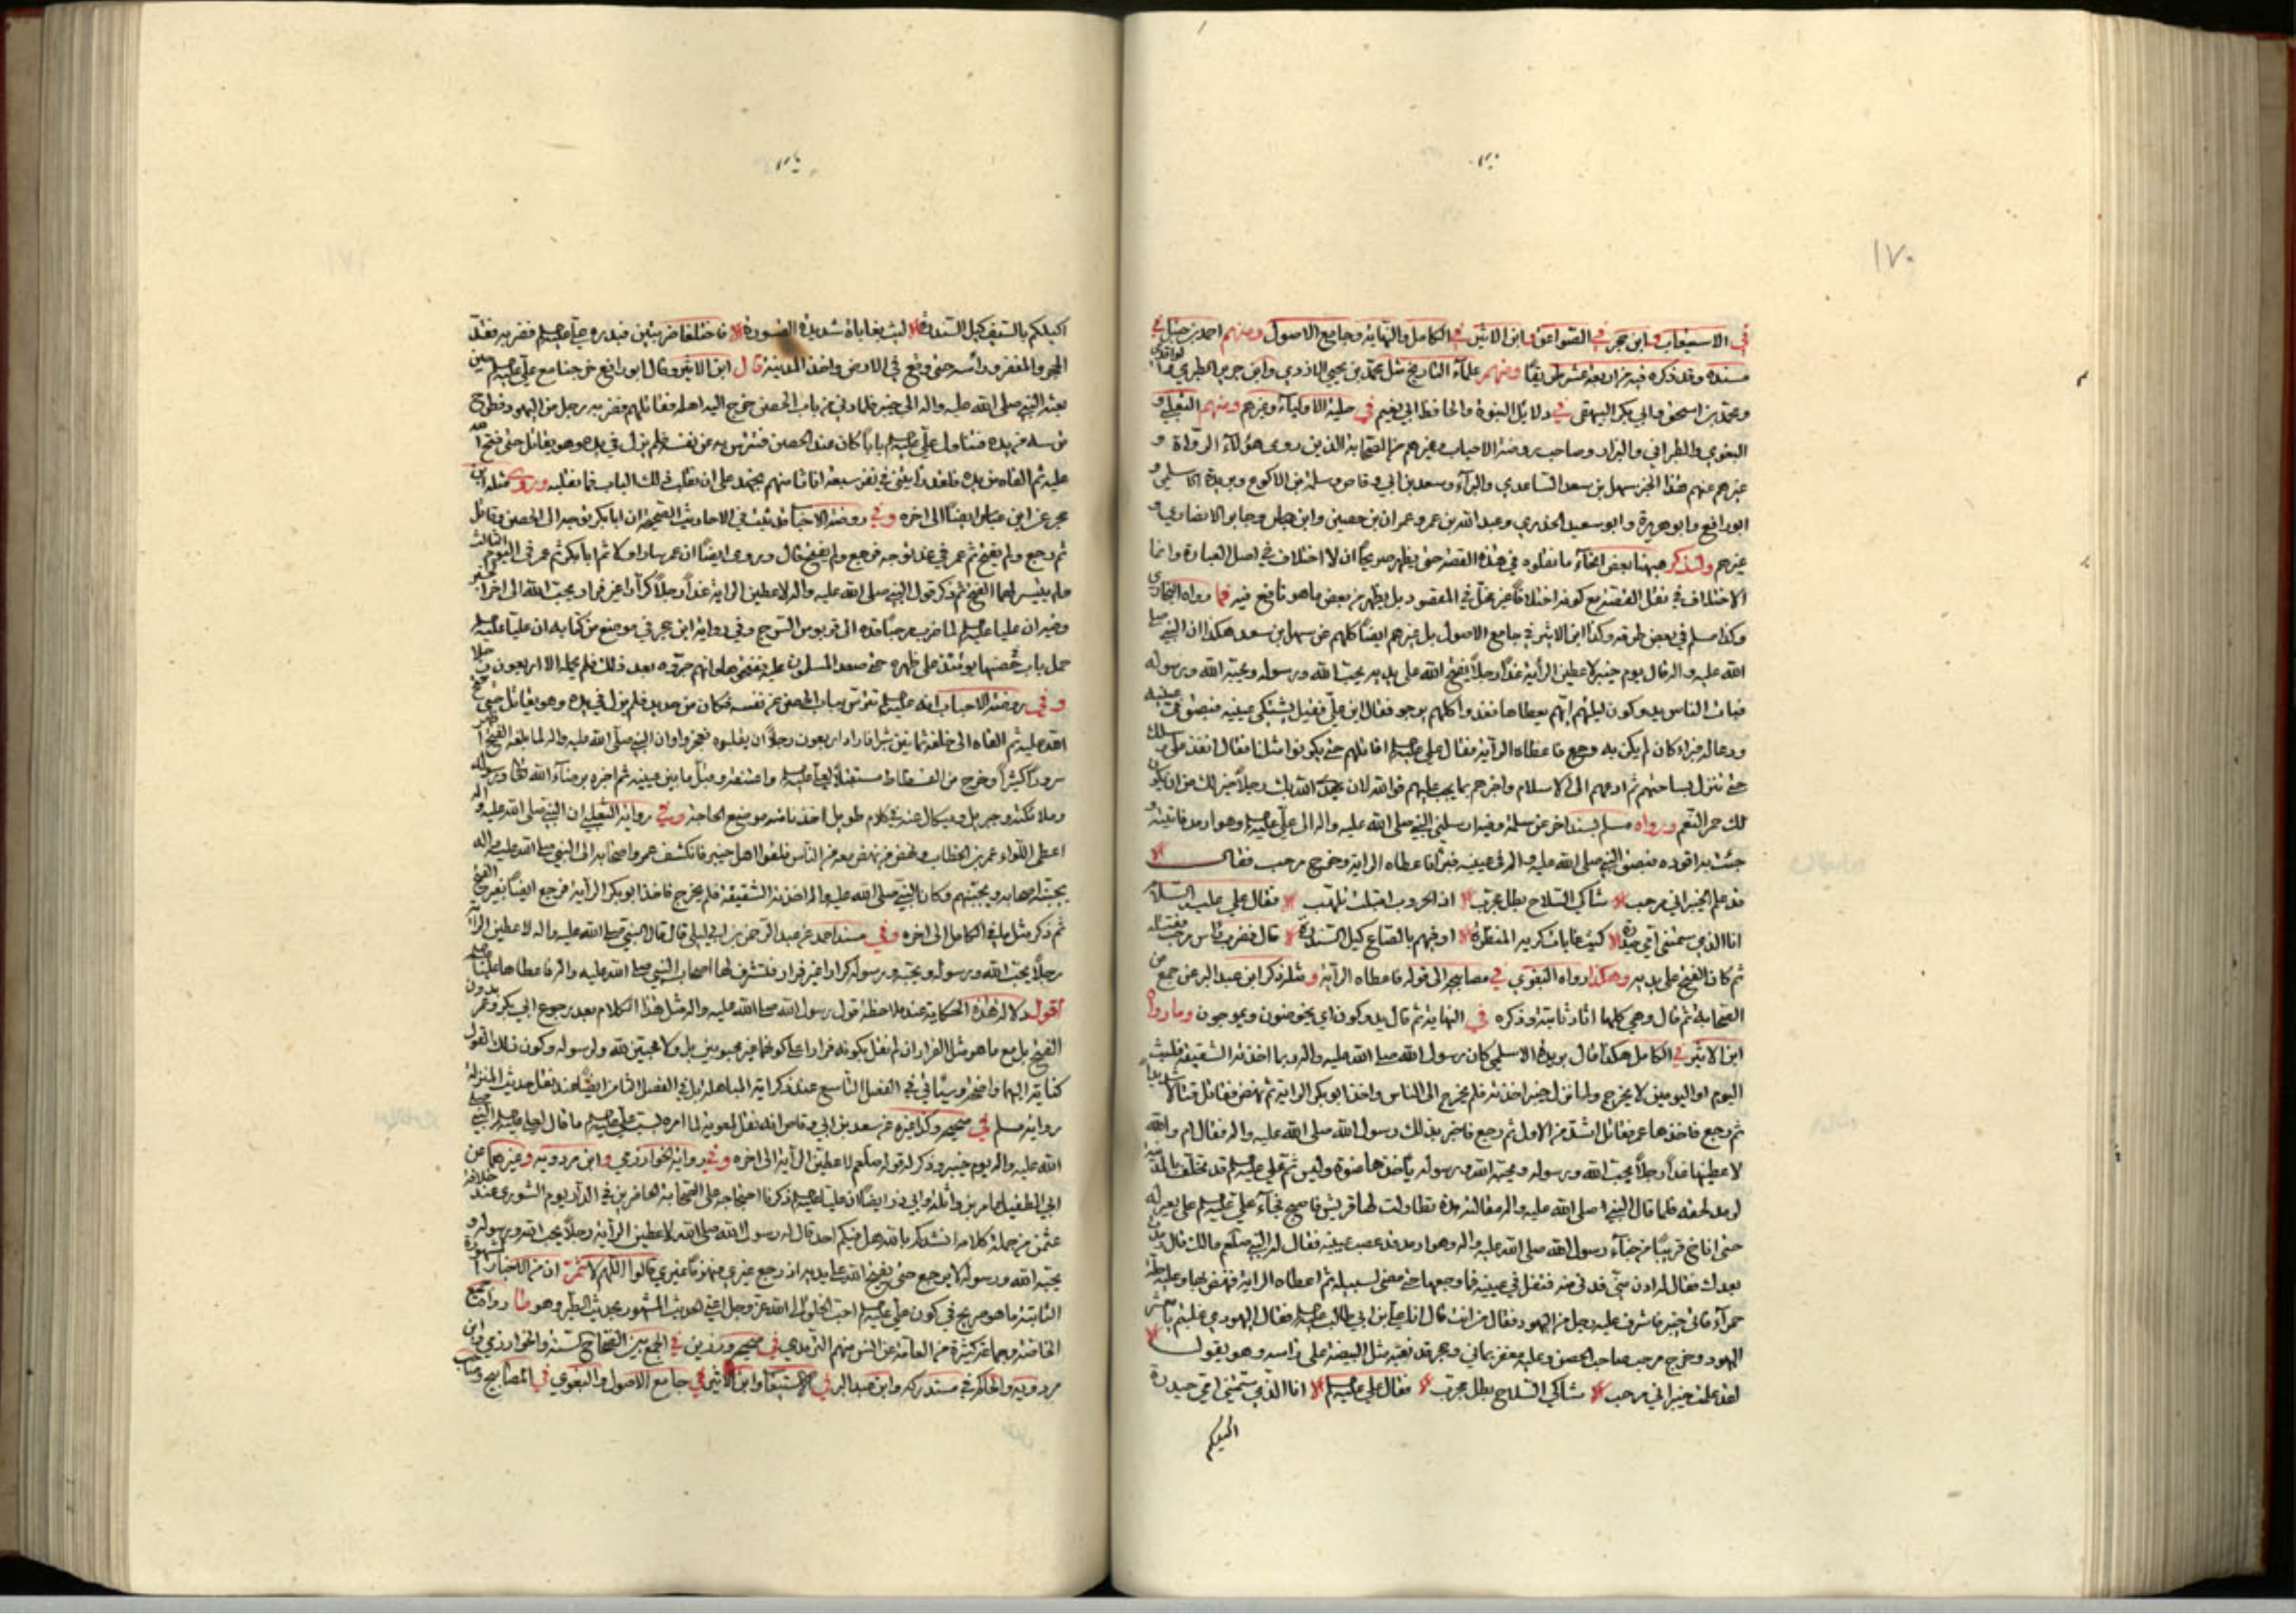 ١٧٠
في الاستيعاب وابن حجر في الصواعق وابن الاثير في الكامل والنهاية وجامع الاصول ومنهم احمد بن حنبل في
مسنده وقد ذكره فيه من اربعة عشر طريقا ومنهم علماء التاريخ مثل محمد بن يحيى الازدي وابن جرير الطبري والواقدي
ومحمد بن اسحق وابي بكر البيهقي في دلائل النبوة والحافظ ابي نعيم في حلية الاولياء وغيرهم ومنهم الثعلبي و
البغوي والطبراني والبزار وصاحب روضة الاحباب وغيرهم من الصحابة الذين روى هؤلاء الرواة و
غيرهم عنهم هذا الخبر سهل بن سعد الساعدي والبراء وسعد بن ابي وقاص وسلمة بن الاكوع وبريدة الاسلمي و
ابو رافع وابو هريرة وابو سعيد الخدري وعبد الله بن عمر وعمران بن حصين وابن عباس وجابر الانصاري و
غيرهم ولنذكر ههنا بعض انحاء ما نقلوه في هذه القصة حتى يظهر صريحا ان لا اختلاف في اصل العبارة وانما
الاختلاف في نقل القصة مع كونه اختلافا غير مخل في المقصود بل يظهر من بعض ما هو نافع فيه فما رواه البخاري
وكذا مسلم في بعض طرقه وكذا ابن الاثير في جامع الاصول بل غيرهم ايضا كلهم عن سهل بن سعد هكذا ان النبي صلى
الله عليه واله قال يوم خيبر لاعطين الراية غدا رجلا يفتح الله على يديه يحب الله ورسوله ويحبه الله ورسوله
فبات الناس يدوكون ليلتهم ايهم يعطاها فغدوا كلهم يرجو فقال اين علي فقيل يشتكي عينيه فبصق في عينيه
ودعا له فبرا كان لم يكن به وجع فاعطاه الراية فقال علي عليه السلام اقاتلهم حتى يكونوا مثلنا فقال انفذ على رسلك
حتى تنزل بساحتهم ثم ادعهم الى الاسلام واخبرهم بما يجب عليهم فوالله لان يهدي الله بك رجلا خير لك من ان يكون
لك حمر النعم ورواه مسلم بسند اخر عن سلمة وفيه ارسلني النبي صلى الله عليه واله الى علي عليه السلام وهو ارمد فاتيته و
جئت به اقوده فبصق النبي صلى الله عليه واله في عينيه فبرئ فاعطاه الراية وخرج مرحب فقال
قد علم الخيبر اني مرحب شاكي السلاح بطل مجرب اذا الحروب اقبلت تلهب فقال علي عليه السلام
انا الذي سمتني امي حيدرة كليث غابات كريه المنظرة اوفيهم بالصاع كيل السندرة قال فضرب راس مرحب فقتله
ثم كان الفتح على يديه وهكذا رواه البغوي في مصابيحه الى قوله فاعطاه الراية ومثله ذكر ابن عبد البر عن جمع من
الصحابة ثم قال وهي كلها اثار ثابتة وذكره في النهاية ثم قال يدوكون اي يخوضون ويموجون وما رواه
ابن الاثير في الكامل هكذا قال بريدة الاسلمي كان رسول الله صلى الله عليه واله ربما اخذته الشقيقة فيلبث
اليوم او اليومين لا يخرج ولما نزل خيبر اخذته فلم يخرج الى الناس واخذ ابو بكر الراية ثم نهض فقاتل قتالا شديدا
ثم رجع فاخذها عمر فقاتل اشد من الاول ثم رجع فاخبر بذلك رسول الله صلى الله عليه واله فقال ام والله
لاعطينها غدا رجلا يحب الله ورسوله ويحبه الله ورسوله ياخذها عنوة وليس ثم علي عليه السلام قد تخلف بالمدينة
لرمد لحقه فلما قال النبي صلى الله عليه واله مقالته هذه تطاولت لها قريش فاصبح فجاء علي عليه السلام على بعير له
حتى اناخ قريبا من خباء رسول الله صلى الله عليه واله وهو ارمد قد عصب عينيه فقال له النبي صلعم مالك قال رمدت
بعدك فقال له ادن مني فدنى منه فتفل في عينيه فما وجعها حتى مضى لسبيله ثم اعطاه الراية فنهض بها وعليه حلة
حمراء فاتى خيبر فاشرف عليه رجل من اليهود فقال من انت قال انا علي بن ابي طالب عليه السلام فقال اليهودي غلبتم يا معشر
اليهود وخرج مرحب صاحب الحصن وعليه مغفر يماني وحجر قد نقبه مثل البيضة على راسه وهو يقول
لقد علمت خيبر اني مرحب شاكي السلاح بطل مجرب فقال علي عليه السلام انا الذي سمتني امي حيدرة
اكيلكم
اكيلكم بالسيف كيل السندرة ليث بغابات شديد القسورة فاختلفا ضربتين فبدره علي عليه السلام فضربه فقد
الحجر والمغفر وراسه حتى وقع في الارض واخذ المدينة قال ابن الاثير وقال ابو رافع خرجنا مع علي عليه السلام حين
بعثه النبي صلى الله عليه واله الى خيبر فلما دنى من باب الحصن خرج اليه اهله فقاتلهم فضربه رجل من اليهود فطرح
ترسه من يده فتناول علي عليه السلام بابا كان عند الحصن فتترس به عن نفسه فلم يزل في يده وهو يقاتل حتى فتح الله
عليه ثم القاه من يده فلقد رايتني في نفر سبعة انا ثامنهم نجهد على ان نقلب ذلك الباب فما نقلبه وروى مثله ابن
حجر عن ابن عباس ايضا الى اخره وفي روضة الاحباب ثبت في الاحاديث الصحيحة ان ابا بكر توجه الى الحصن وقاتل
ثم رجع ولم يفتح ثم عمر في غد توجه فرجع ولم يفتح قال وروى ايضا ان عمر سار اولا ثم ابا بكر ثم عمر في اليوم الثالث
ولم يتيسر لهما الفتح ثم ذكر قول النبي صلى الله عليه واله لاعطين الراية غدا رجلا كرارا غير فرار يحب الله الى اخر الخبر
وفيه ان عليا عليه السلام لما ضرب مرحبا قده الى قربوس السرج وفي رواية ابن حجر في موضع من كتابه ان عليا عليه السلام
حمل باب حصنها يومئذ على ظهره حتى صعد المسلمون عليه ففتحوها وانهم جروه بعد ذلك فلم يحمله الا اربعون رجلا
وفي روضة الاحباب انه عليه السلام تترس بباب الحصن عن نفسه فكان من حديد فلم يزل في يده وهو يقاتل حتى فتح
الله عليه ثم القاه الى خلفه ثمانين شبرا فاراد اربعون رجلا ان يقلبوه فعجزوا وان النبي صلى الله عليه واله لما بلغه الفتح
سر سرورا كثيرا وخرج من الفسطاط مستقبلا لعلي عليه السلام واعتنقه وقبل ما بين عينيه ثم اخبره برضاء الله تعالى ورسوله
وملائكته وجبريل وميكال عنه في كلام طويل وفي رواية الثعلبي ان النبي صلى الله عليه واله
اعطى اللواء عمر بن الخطاب ونهض من نهض معه من الناس فلقوا اهل خيبر فانكشف عمر واصحابه الى النبي صلى الله عليه واله
يجبنه اصحابه ويجبنهم وكان النبي صلى الله عليه واله اخذته الشقيقة فلم يخرج فاخذ ابو بكر الراية فرجع ايضا بغير الفتح
ثم ذكر مثل ما في الكامل الى اخره وفي مسند احمد عن عبد الرحمن بن ابي ليلى قال قال النبي صلى الله عليه واله لاعطين الراية
رجلا يحب الله ورسوله ويحبه ورسوله كرارا غير فرار فتشرف لها اصحاب النبي صلى الله عليه واله فاعطاها عليا عليه السلام
اقول دلالة هذه الحكاية عند ملاحظة قول رسول الله صلى الله عليه واله مثل هذا الكلام بعد رجوع ابي بكر وعمر بدون
الفتح بل مع ما هو مثل الفرار ان لم نقل بكونه فرارا على كونهما غير محبوبين بل ولا محبين لله ولرسوله وكون ذلك القول
كناية اليهما واضحة وسياتي في الفصل التاسع عند ذكر اية المباهلة بل في الفصل الثامن ايضا عند نقل حديث المنزلة
رواية مسلم في صحيحه وكذا غيره عن سعد بن ابي وقاص انه نقل لمعوية لما امره بسب علي عليه السلام ما قال لعلي عليه السلام النبي صلى
الله عليه واله يوم خيبر وذكر له قوله صلعم لاعطين الراية الى اخره وفي رواية الخوارزمي وابن مردويه وغيرهما عن
ابي الطفيل عامر بن واثلة وابي ذر ايضا ان عليا عليه السلام ذكر في احتجاجه على الصحابة الحاضرين في الدار يوم الشورى عند خلافة
عثمن من جملة كلامه انشدكم بالله هل فيكم احد قال له رسول الله صلى الله لاعطين الراية رجلا يحب الله ورسوله و
يحبه الله ورسوله لا يرجع حتى يفتح الله على يديه اذ رجع غيري منهزما غيري قالوا اللهم لا ثم ان من الاخبار المشهورة
الثابتة ما هو صريح في كون علي عليه السلام احب الخلق الى الله عز وجل اعني الحديث المشهور بحديث الطير وهو ما رواه جميع
الخاصة وجماعة كثيرة من العامة عن انس منهم الترمذي في صحيحه ورزين في الجمع بين الصحاح الستة والخوارزمي وابن
مردويه والحاكم في مستدركه وابن عبد البر في الاستيعاب وابن الاثير في جامع الاصول والبغوي في المصابيح وصاحب